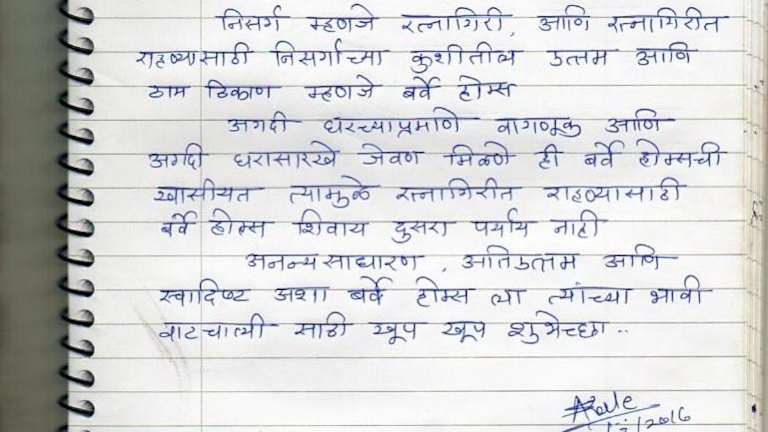 निसर्ग म्हणजे रत्नागिरी, आणि रत्नागिरीत
राहण्यासाठी निसर्गाच्या कुशीतील उत्तम आणि
ठाम ठिकाण म्हणजे बर्वे होम्स
अगदी घरच्याप्रमाणे वागणूक आणि
अगदी घरासारखे जेवण मिळणे ही बर्वे होम्सची
खासीयत त्यामुळे रत्नागिरीत राहण्यासाठी
बर्वे होम्स शिवाय दुसरा पर्याय नाही
अनन्यसाधारण, अतिउत्तम आणि
स्वादिष्ट अशा बर्वे होम्स ला त्यांच्या भावी
वाटचाली साठी खूप खूप शुभेच्छा..
/2016